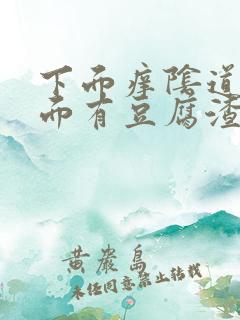 下而痒陰道
而有豆腐渣
黄岩島
未经同意禁止转载